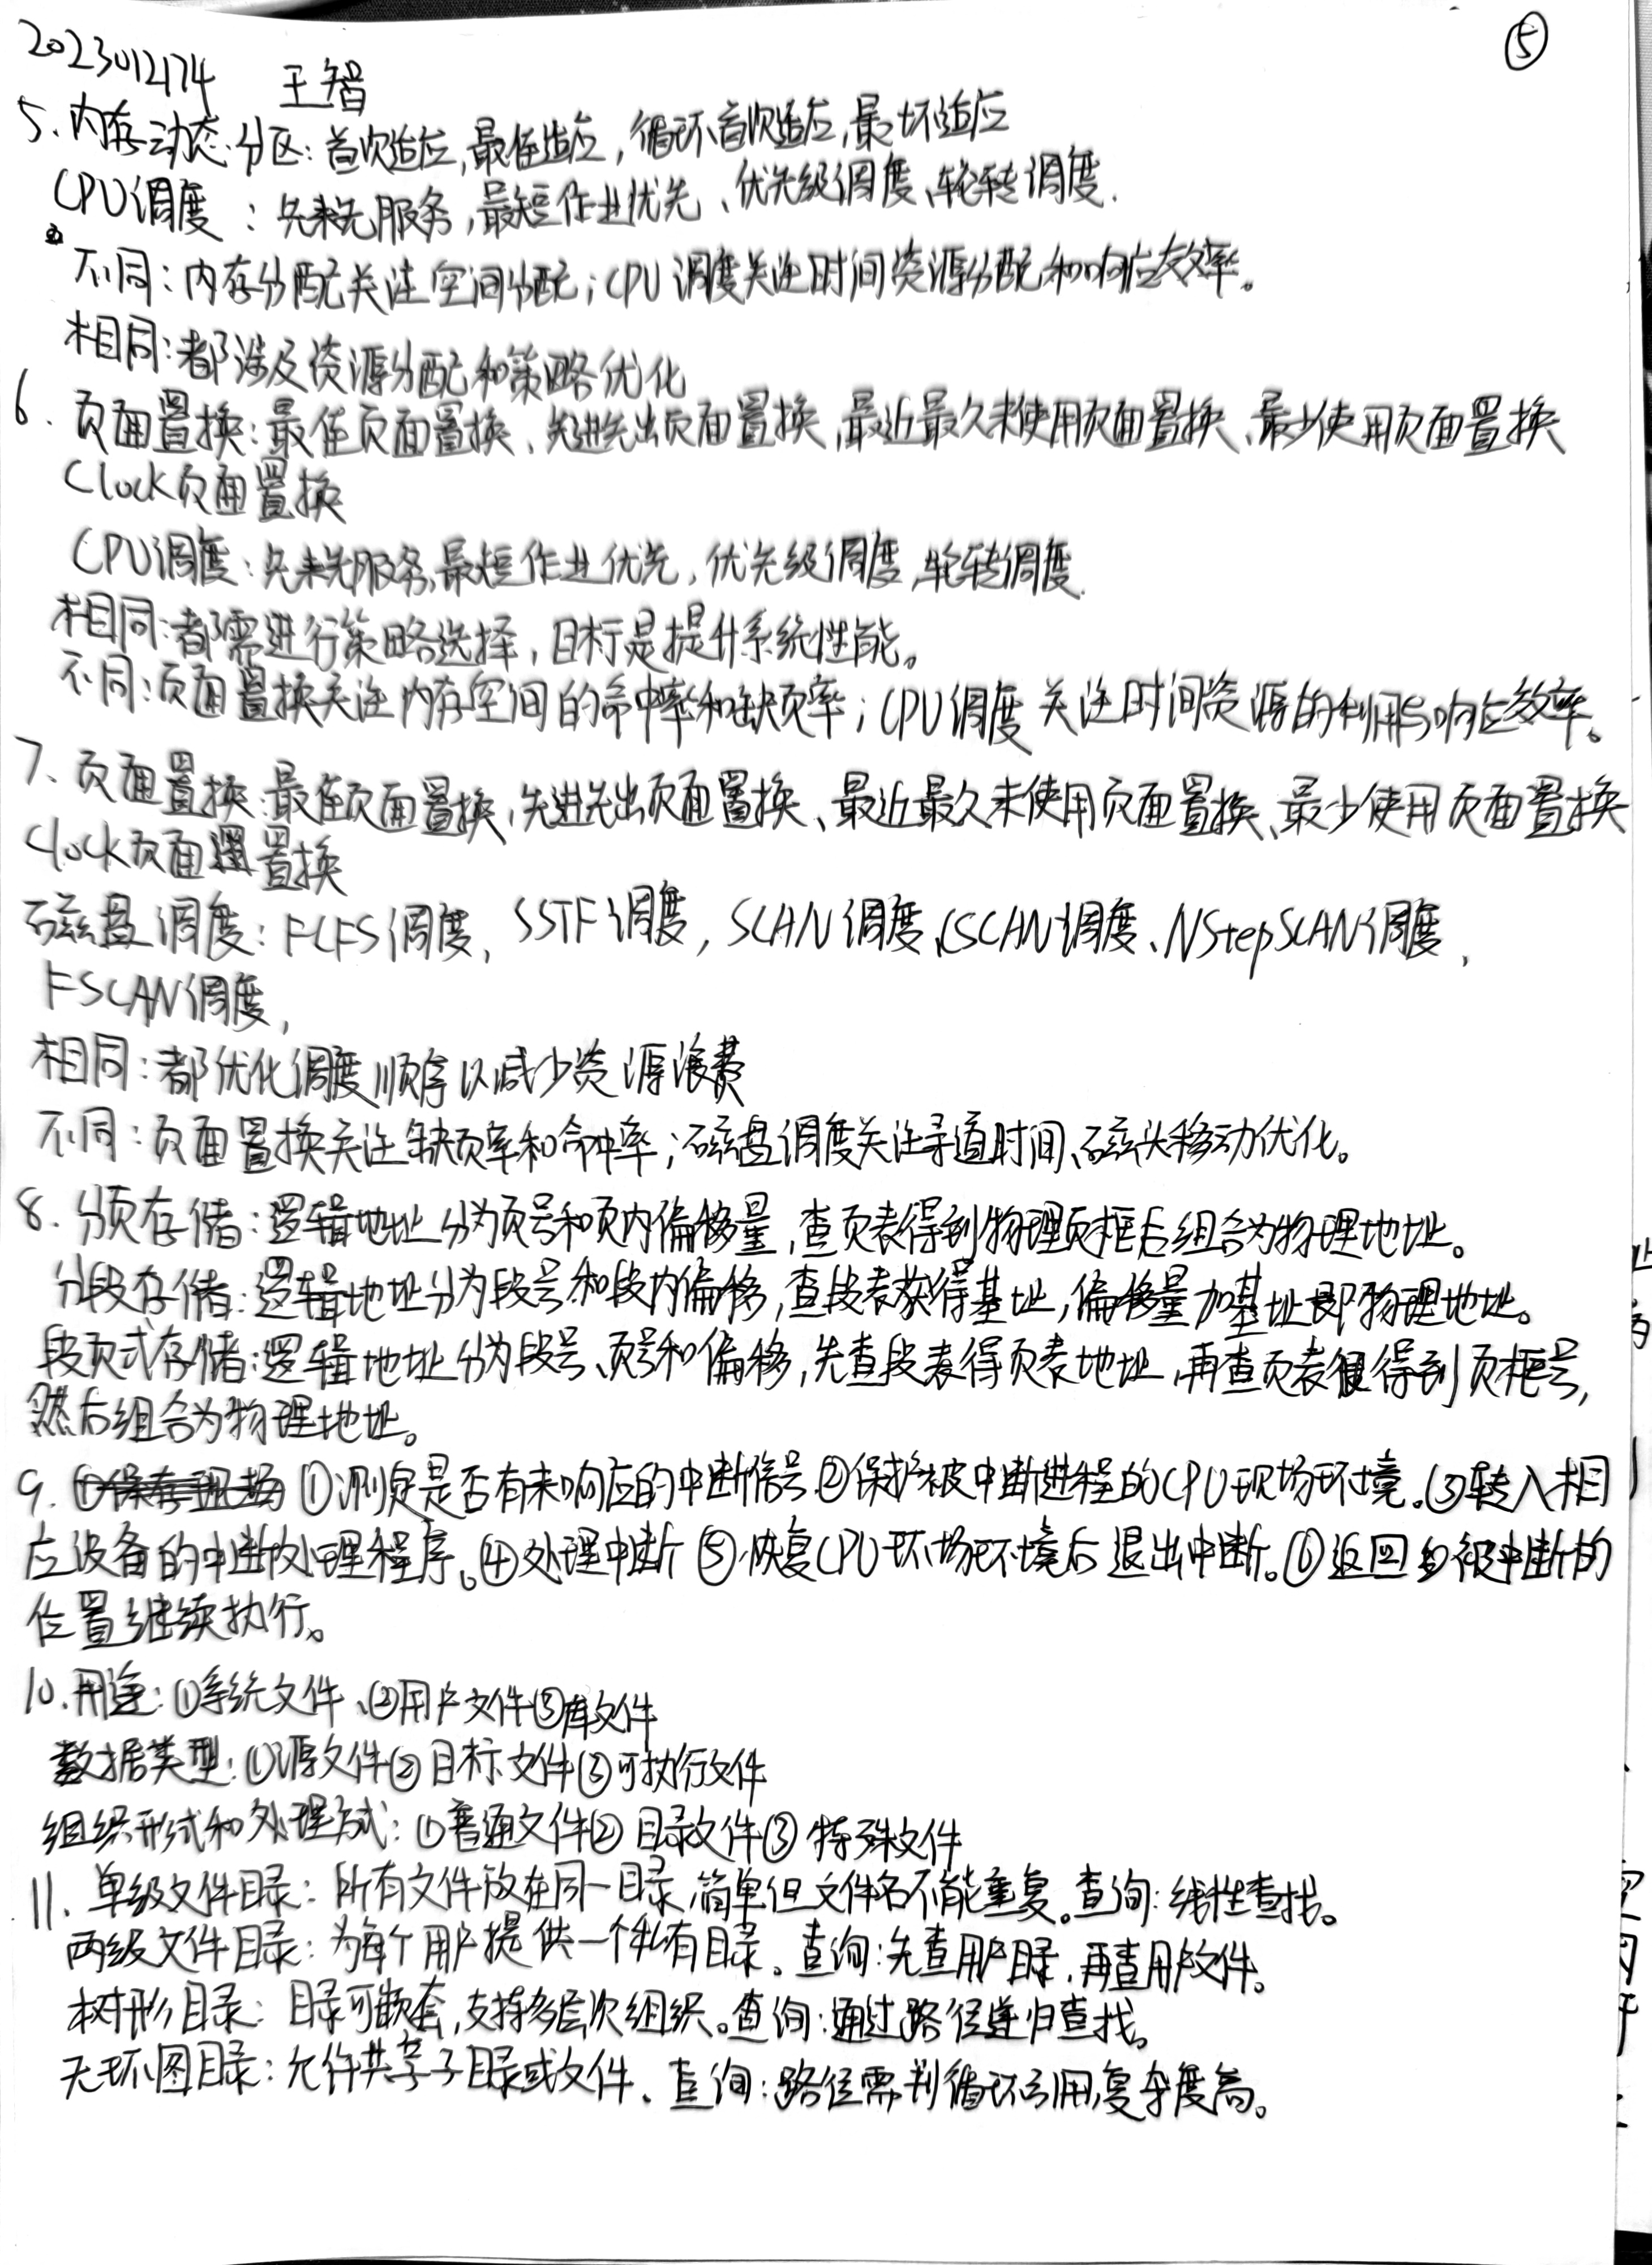 ⑤
2023012174 王智
5、内存动态分区：首次适应，最佳适应，循环首次适应，最坏适应
CPU调度：先来先服务，最短作业优先、优先级调度、轮转调度.
不同：内存分配关注空间分配；CPU调度关注时间资源分配和响应效率。
相同：都涉及资源分配和策略优化
6、页面置换：最佳页面置换、先进先出页面置换、最近最久未使用页面置换、最少使用页面置换
Clock页面置换
CPU调度：先来先服务、最短作业优先，优先级调度，轮转调度.
相同：都需进行策略选择，目标是提升系统性能。
不同：页面置换关注内存空间的命中率和缺页率；CPU调度关注时间资源的利用与响应效率。
7、页面置换：最佳页面置换，先进先出页面置换、最近最久未使用页面置换、最少使用页面置换
Clock页面置换
磁盘调度：FCFS调度，SSTF调度，SCAN调度、CSCAN调度、NStepSCAN调度，
FSCAN调度，
相同：都优化调度顺序以减少资源浪费
不同：页面置换关注缺页率和命中率；磁盘调度关注寻道时间、磁头移动优化。
8. 分页存储：逻辑地址分为页号和页内偏移量，查页表得到物理页框后组合为物理地址。
分段存储：逻辑地址分为段号和段内偏移，查段表获得基址，偏移量加基址即物理地址。
段页式存储：逻辑地址分为段号、页号和偏移，先查段表得页表地址，再查页表得到页框号，
然后组合为物理地址。
9. ①测定是否有未响应的中断信号②保护被中断进程的CPU现场环境。③转入相
应设备的中断处理程序。④处理中断⑤恢复CPU环场环境后退出中断。⑥返回到被中断的
位置继续执行。
10.用途：①系统文件、②用户文件③库文件
数据类型：①源文件②目标文件③可执行文件
组织形式和处理方式：①普通文件②目录文件③特殊文件
11. 单级文件目录：所有文件放在同一目录，简单但文件名不能重复。查询：线性查找。
两级文件目录：为每个用户提供一个私有目录。查询：先查用户目录，再查用户文件。
树形目录：目录可嵌套，支持多层次组织。查询：通过路径递归查找。
无环图目录：允许共享子目录或文件、查询：路径需判循环引用，复杂度高。